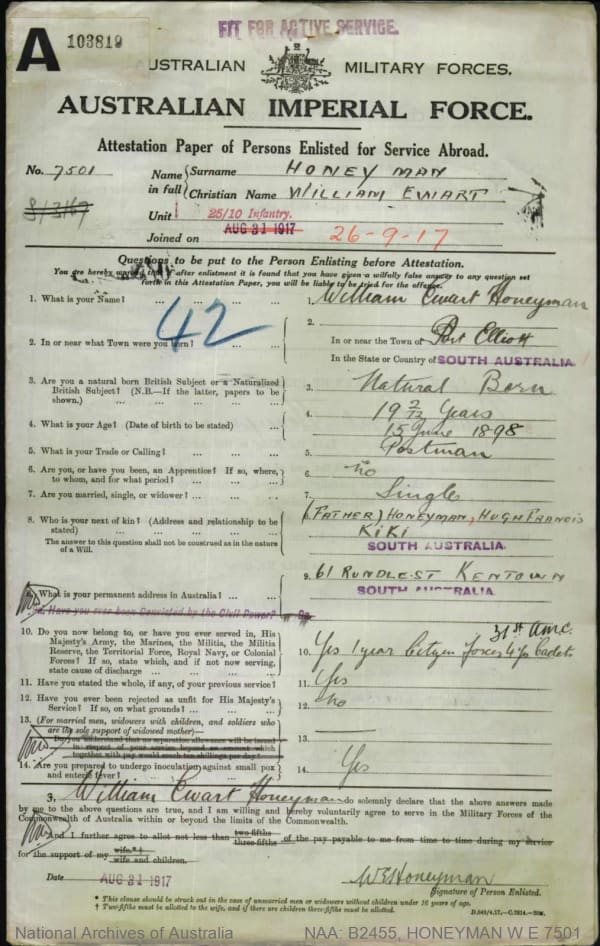 FIT FOR ACTIVE SERVICE.
A 103819
AUSTRALIAN MILITARY FORCES.
AUSTRALIAN IMPERIAL FORCE.
Attestation Paper of Persons Enlisted for Service Abroad.
No. 7501
Name in full
Surname HONEYMAN
Christian Name WILLIAM EWART
8/3167
Unit 25/10 Infantry.
Joined on AUG 31 1917 26-9-17
Questions to be put to the Person Enlisting before Attestation.
You are hereby warned that if after enlistment it is found that you have given a wilfully false answer to any question set
forth in this Attestation Paper, you will be liable to be tried for the offence.
42
1. What is your Name? ... ... ... ...
1. William Ewart Honeyman
2. In or near what Town were you born? ... ...
2. In or near the Town of Port Elliott
In the State or Country of SOUTH AUSTRALIA
3. Are you a natural born British Subject or a Naturalized
British Subject? (N.B.—If the latter, papers to be
shown.) ... ... ... ... ...
3. Natural Born
4. What is your Age? (Date of birth to be stated) ...
4. 19 2/12 Years
15 June 1898
5. What is your Trade or Calling? ... ... ...
5. Postman
6. Are you, or have you been, an Apprentice? If so, where,
to whom, and for what period? ... ... ...
6. no
7. Are you married, single, or widower? ... ... ...
7. Single
8. Who is your next of kin? (Address and relationship to be
stated) ... ... ... ... ...
The answer to this question shall not be construed as in the nature
of a Will.
8. (FATHER) HONEYMAN, HUGH FRANCIS
KIKI
SOUTH AUSTRALIA
9. What is your permanent address in Australia? ... ...
9. 61 RUNDLE ST KENTOWN
SOUTH AUSTRALIA
Have you ever been Convicted by the Civil Power?
10. Do you now belong to, or have you ever served in, His
Majesty's Army, the Marines, the Militia, the Militia
Reserve, the Territorial Force, Royal Navy, or Colonial
Forces? If so, state which, and if not now serving,
state cause of discharge ... ... ... ...
31st AMC.
10. Yes 1 year Citizen forces 4 yrs Cadets
11. Have you stated the whole, if any, of your previous service?
11. Yes
12. Have you ever been rejected as unfit for His Majesty's
Service? If so, on what grounds? ... ... ...
12. no
13. (For married men, widowers with children, and soldiers who
are the sole support of widowed mother)—
Do you understand that no separation allowance will be issued
in respect of your service beyond an amount which
together with pay would reach ten shillings per day?
13. —
14. Are you prepared to undergo inoculation against small pox
and enteric fever? ... ... ... ...
14. Yes
I, William Ewart Honeyman do solemnly declare that the above answers made
by me to the above questions are true, and I am willing and hereby voluntarily agree to serve in the Military Forces of the
Commonwealth of Australia within or beyond the limits of the Commonwealth.
And I further agree to allot not less than two-fifths three-fifths of the pay payable to me from time to time during my service
for the support of my wife.* † wife and children.
Date AUG 31 1917
W E Honeyman
Signature of Person Enlisted.
* This clause should be struck out in the case of unmarried men or widowers without children under 16 years of age.
† Two-fifths must be allotted to the wife, and if there are children three-fifths must be allotted.
National Archives of Australia
NAA: B2455, HONEYMAN W E 7501